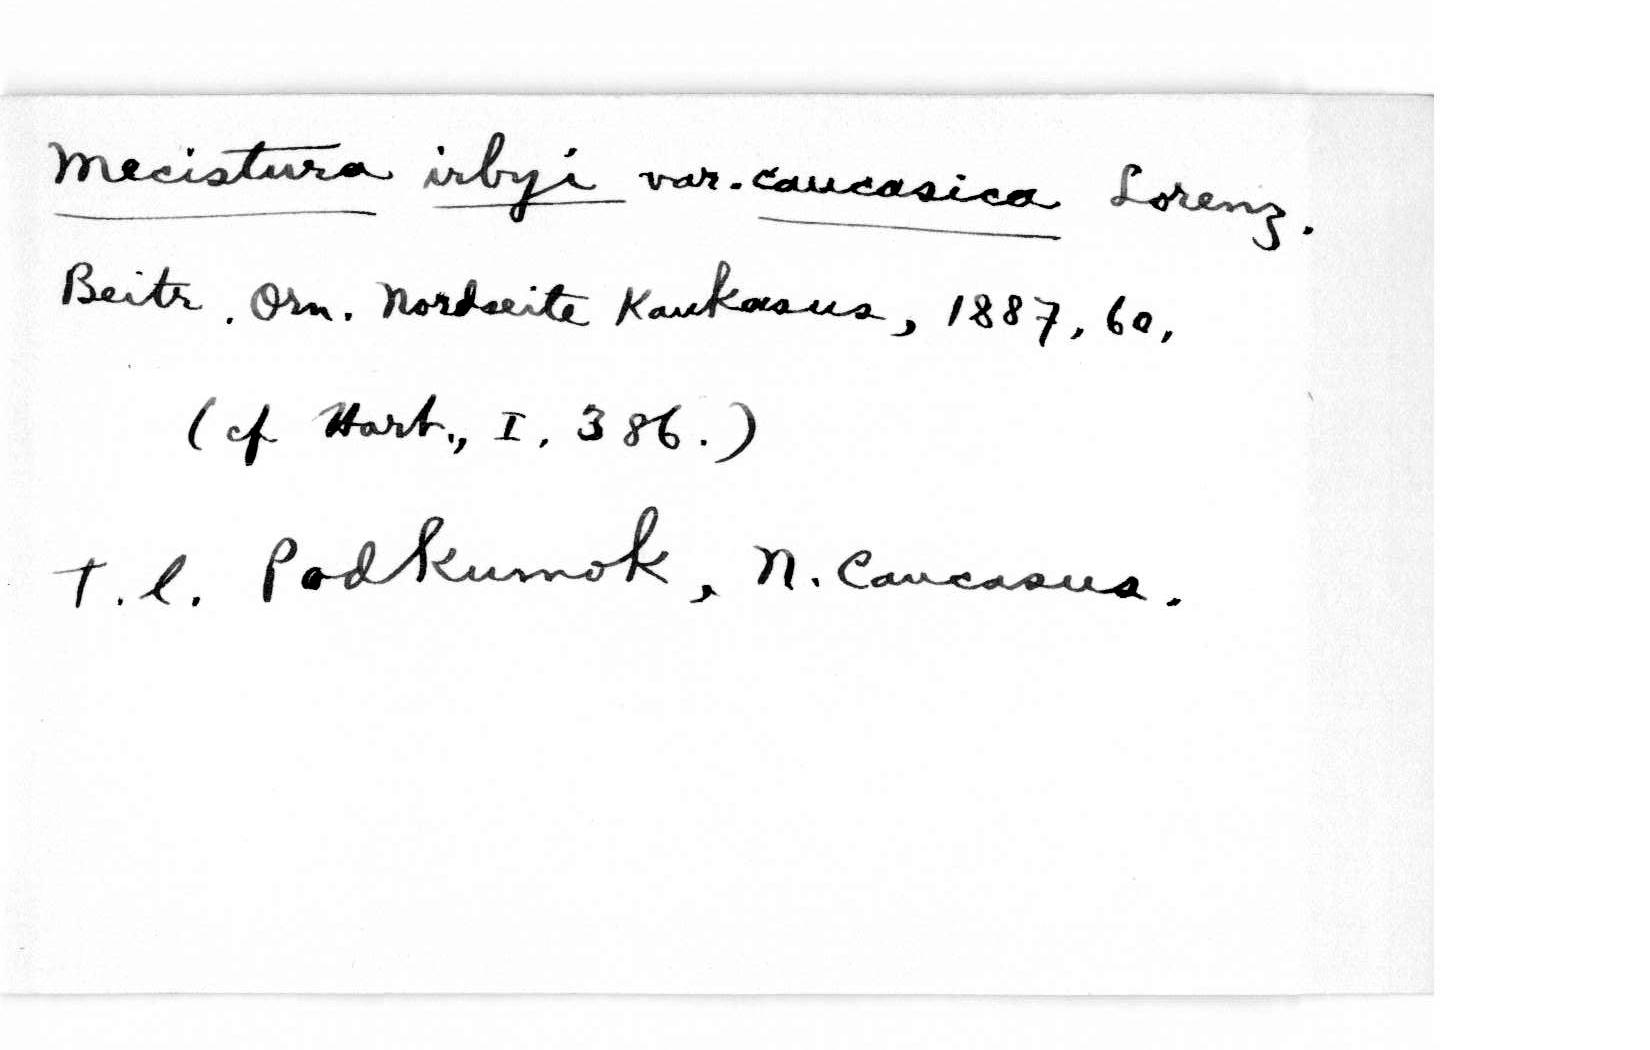 Mecistura irbyi var. caucasica Lorenz.
Beitr. Orn. Nordseite Kaukasus, 1887, 60,
(cf Hart., I, 386.)
T. l. Podkumok, N. Caucasus.